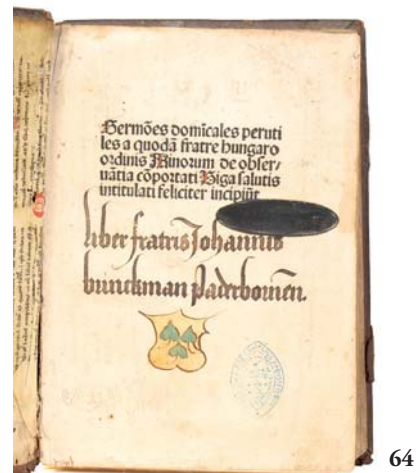 Sermões domicales peruti
les a quodã fratre hungaro
ordinis Minorum de obser⸗
uãtia cõportati Biga salutis
intitulati feliciter incipiũt
liber fratris Johannis
Paderbornen̄.
64